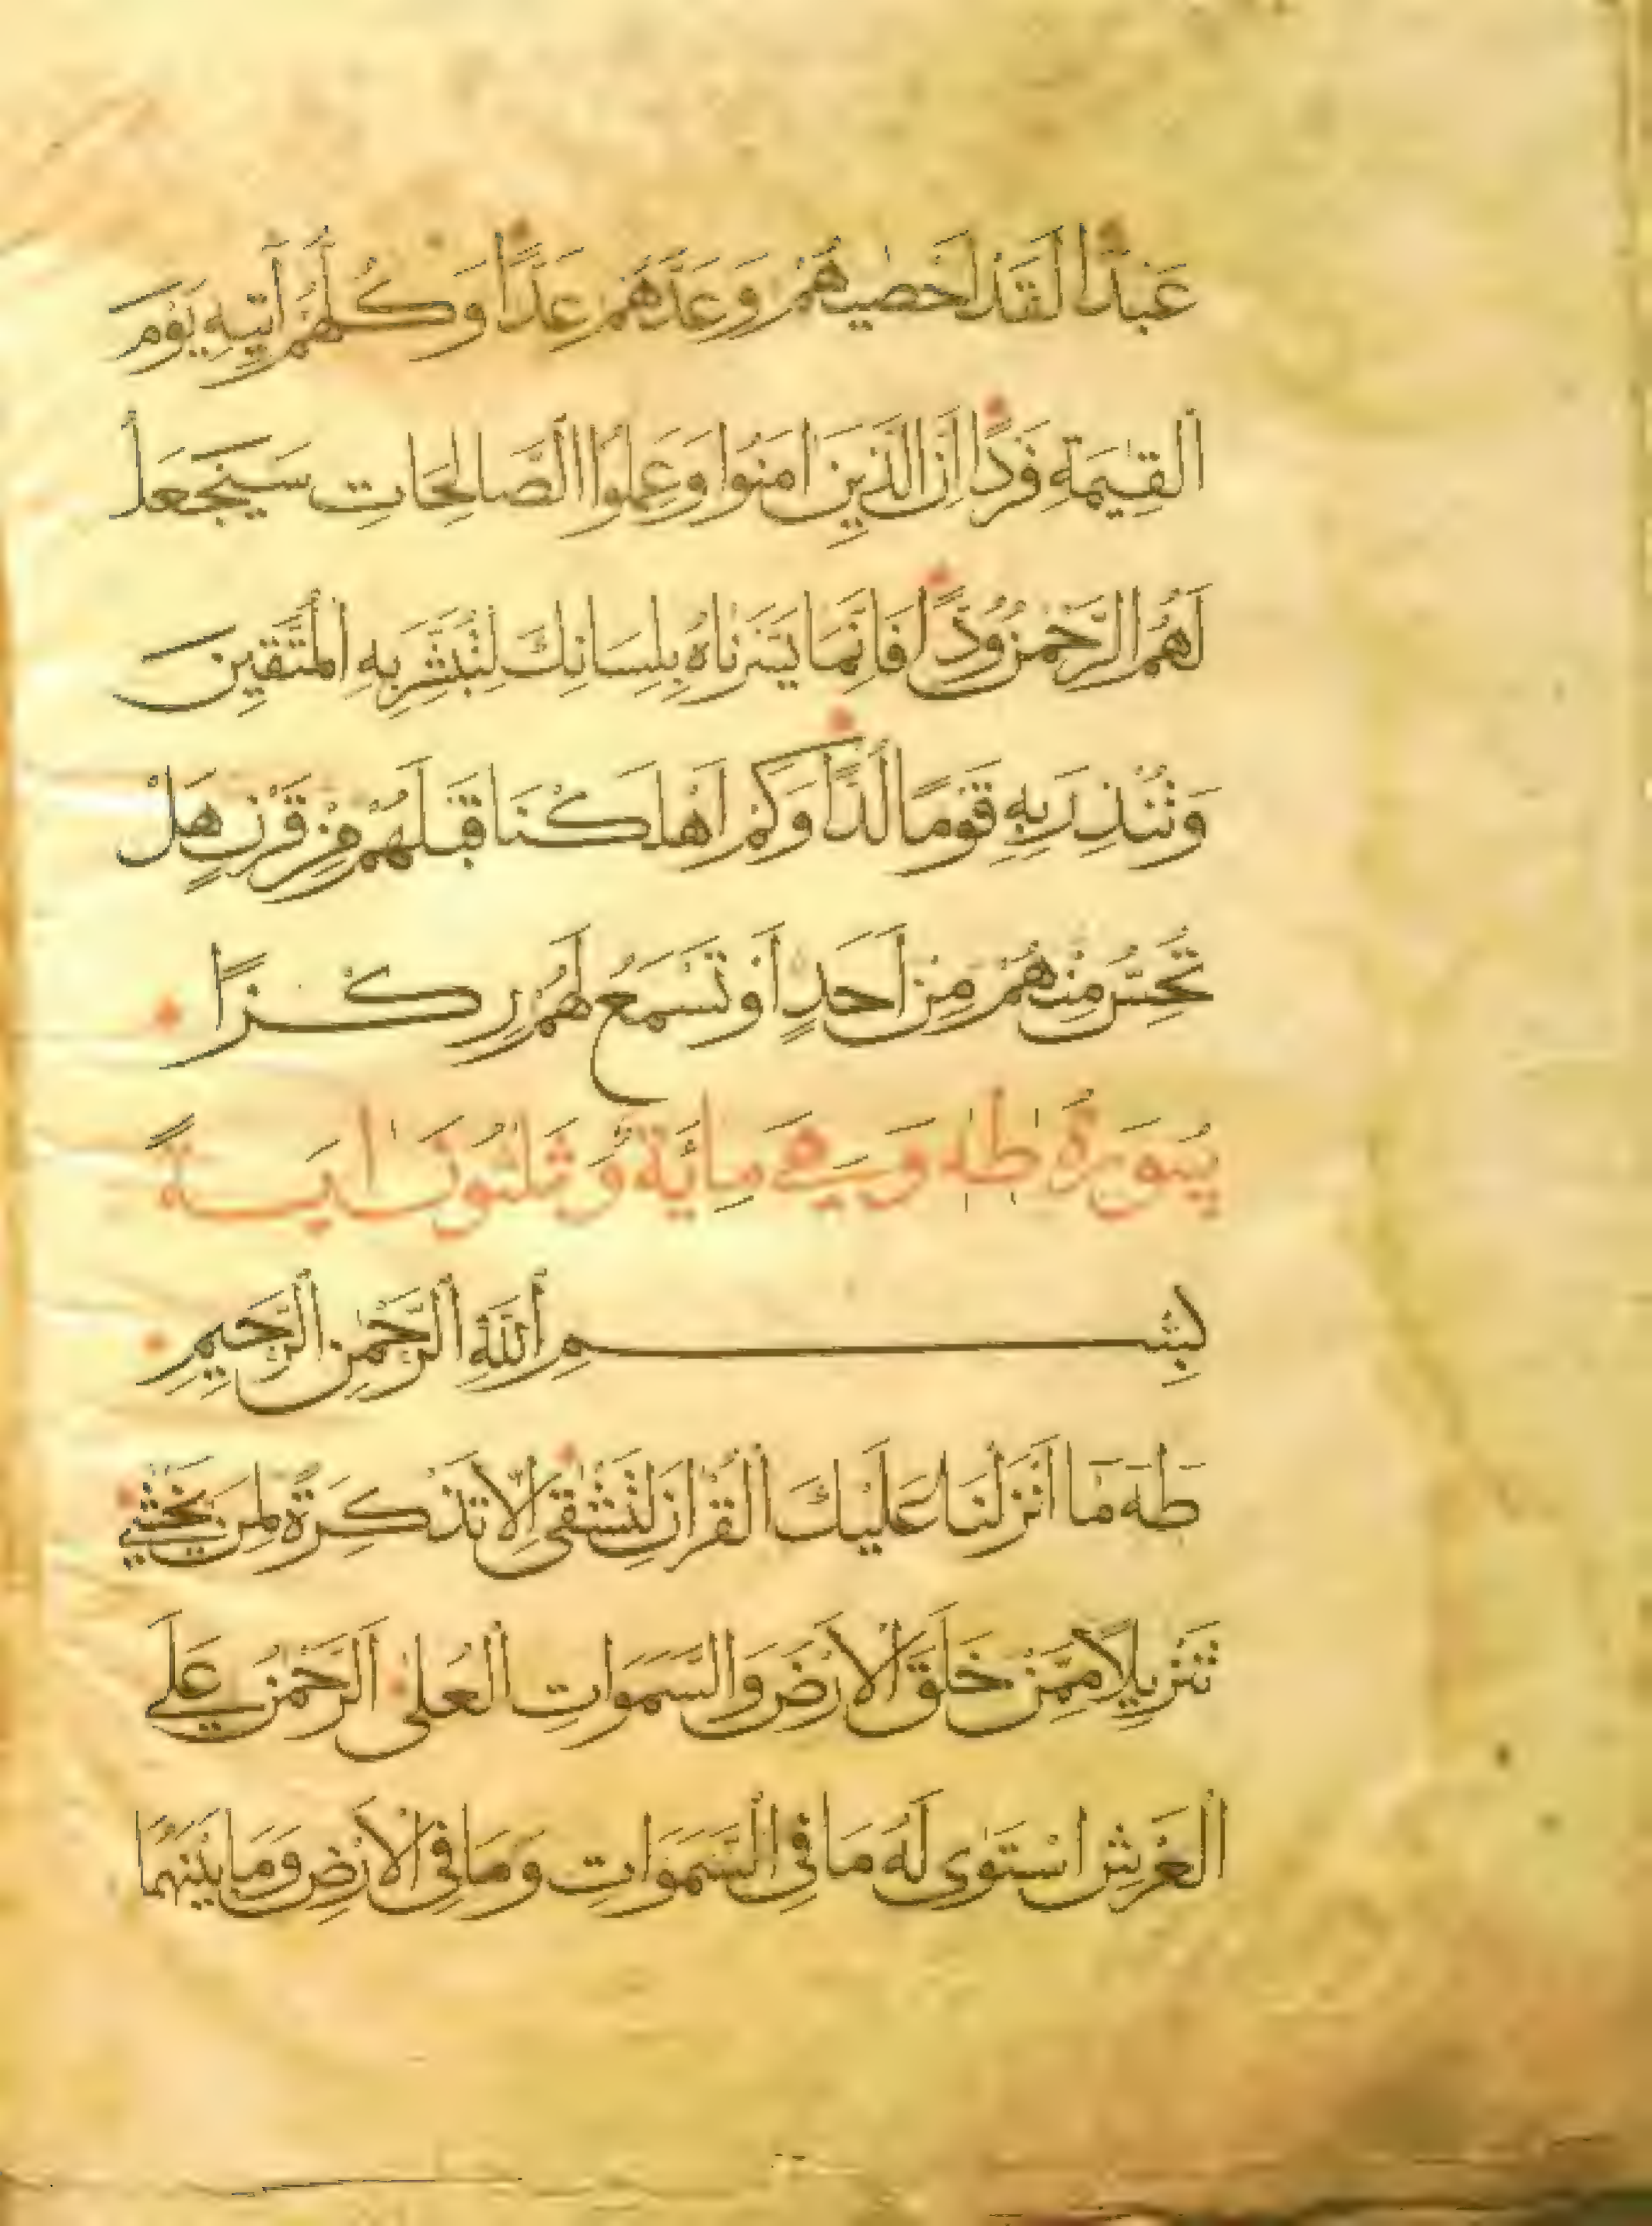 عَبْدًا لَقَدْ اَحْصٰيهُمْ وَعَدَّهُمْ عَدًّا وَكُلُّهُمْ اٰتِيهِ يَوْمَ
الْقِيٰمَةِ فَرْدًا اِنَّ الَّذِينَ اٰمَنُوا وَعَمِلُوا الصَّالِحَاتِ سَيَجْعَلُ
لَهُمُ الرَّحْمٰنُ وُدًّا فَاِنَّمَا يَسَّرْنَاهُ بِلِسَانِكَ لِتُبَشِّرَ بِهِ الْمُتَّقِينَ
وَتُنْذِرَ بِهِ قَوْمًا لُدًّا وَكَمْ اَهْلَكْنَا قَبْلَهُمْ مِنْ قَرْنٍ هَلْ
تُحِسُّ مِنْهُمْ مِنْ اَحَدٍ اَوْ تَسْمَعُ لَهُمْ رِكْزًا
سُورَةُ طٰهٰ وَهِيَ مِائَةٌ وَثَلٰثُونَ اٰيَةً
بِسْمِ اللّٰهِ الرَّحْمٰنِ الرَّحِيمِ
طٰهٰ مَا اَنْزَلْنَا عَلَيْكَ الْقُرْاٰنَ لِتَشْقٰى اِلَّا تَذْكِرَةً لِمَنْ يَخْشٰى
تَنْزِيلًا مِمَّنْ خَلَقَ الْاَرْضَ وَالسَّمٰوَاتِ الْعُلٰى اَلرَّحْمٰنُ عَلَى
الْعَرْشِ اسْتَوٰى لَهُ مَا فِي السَّمٰوَاتِ وَمَا فِي الْاَرْضِ وَمَا بَيْنَهُمَا